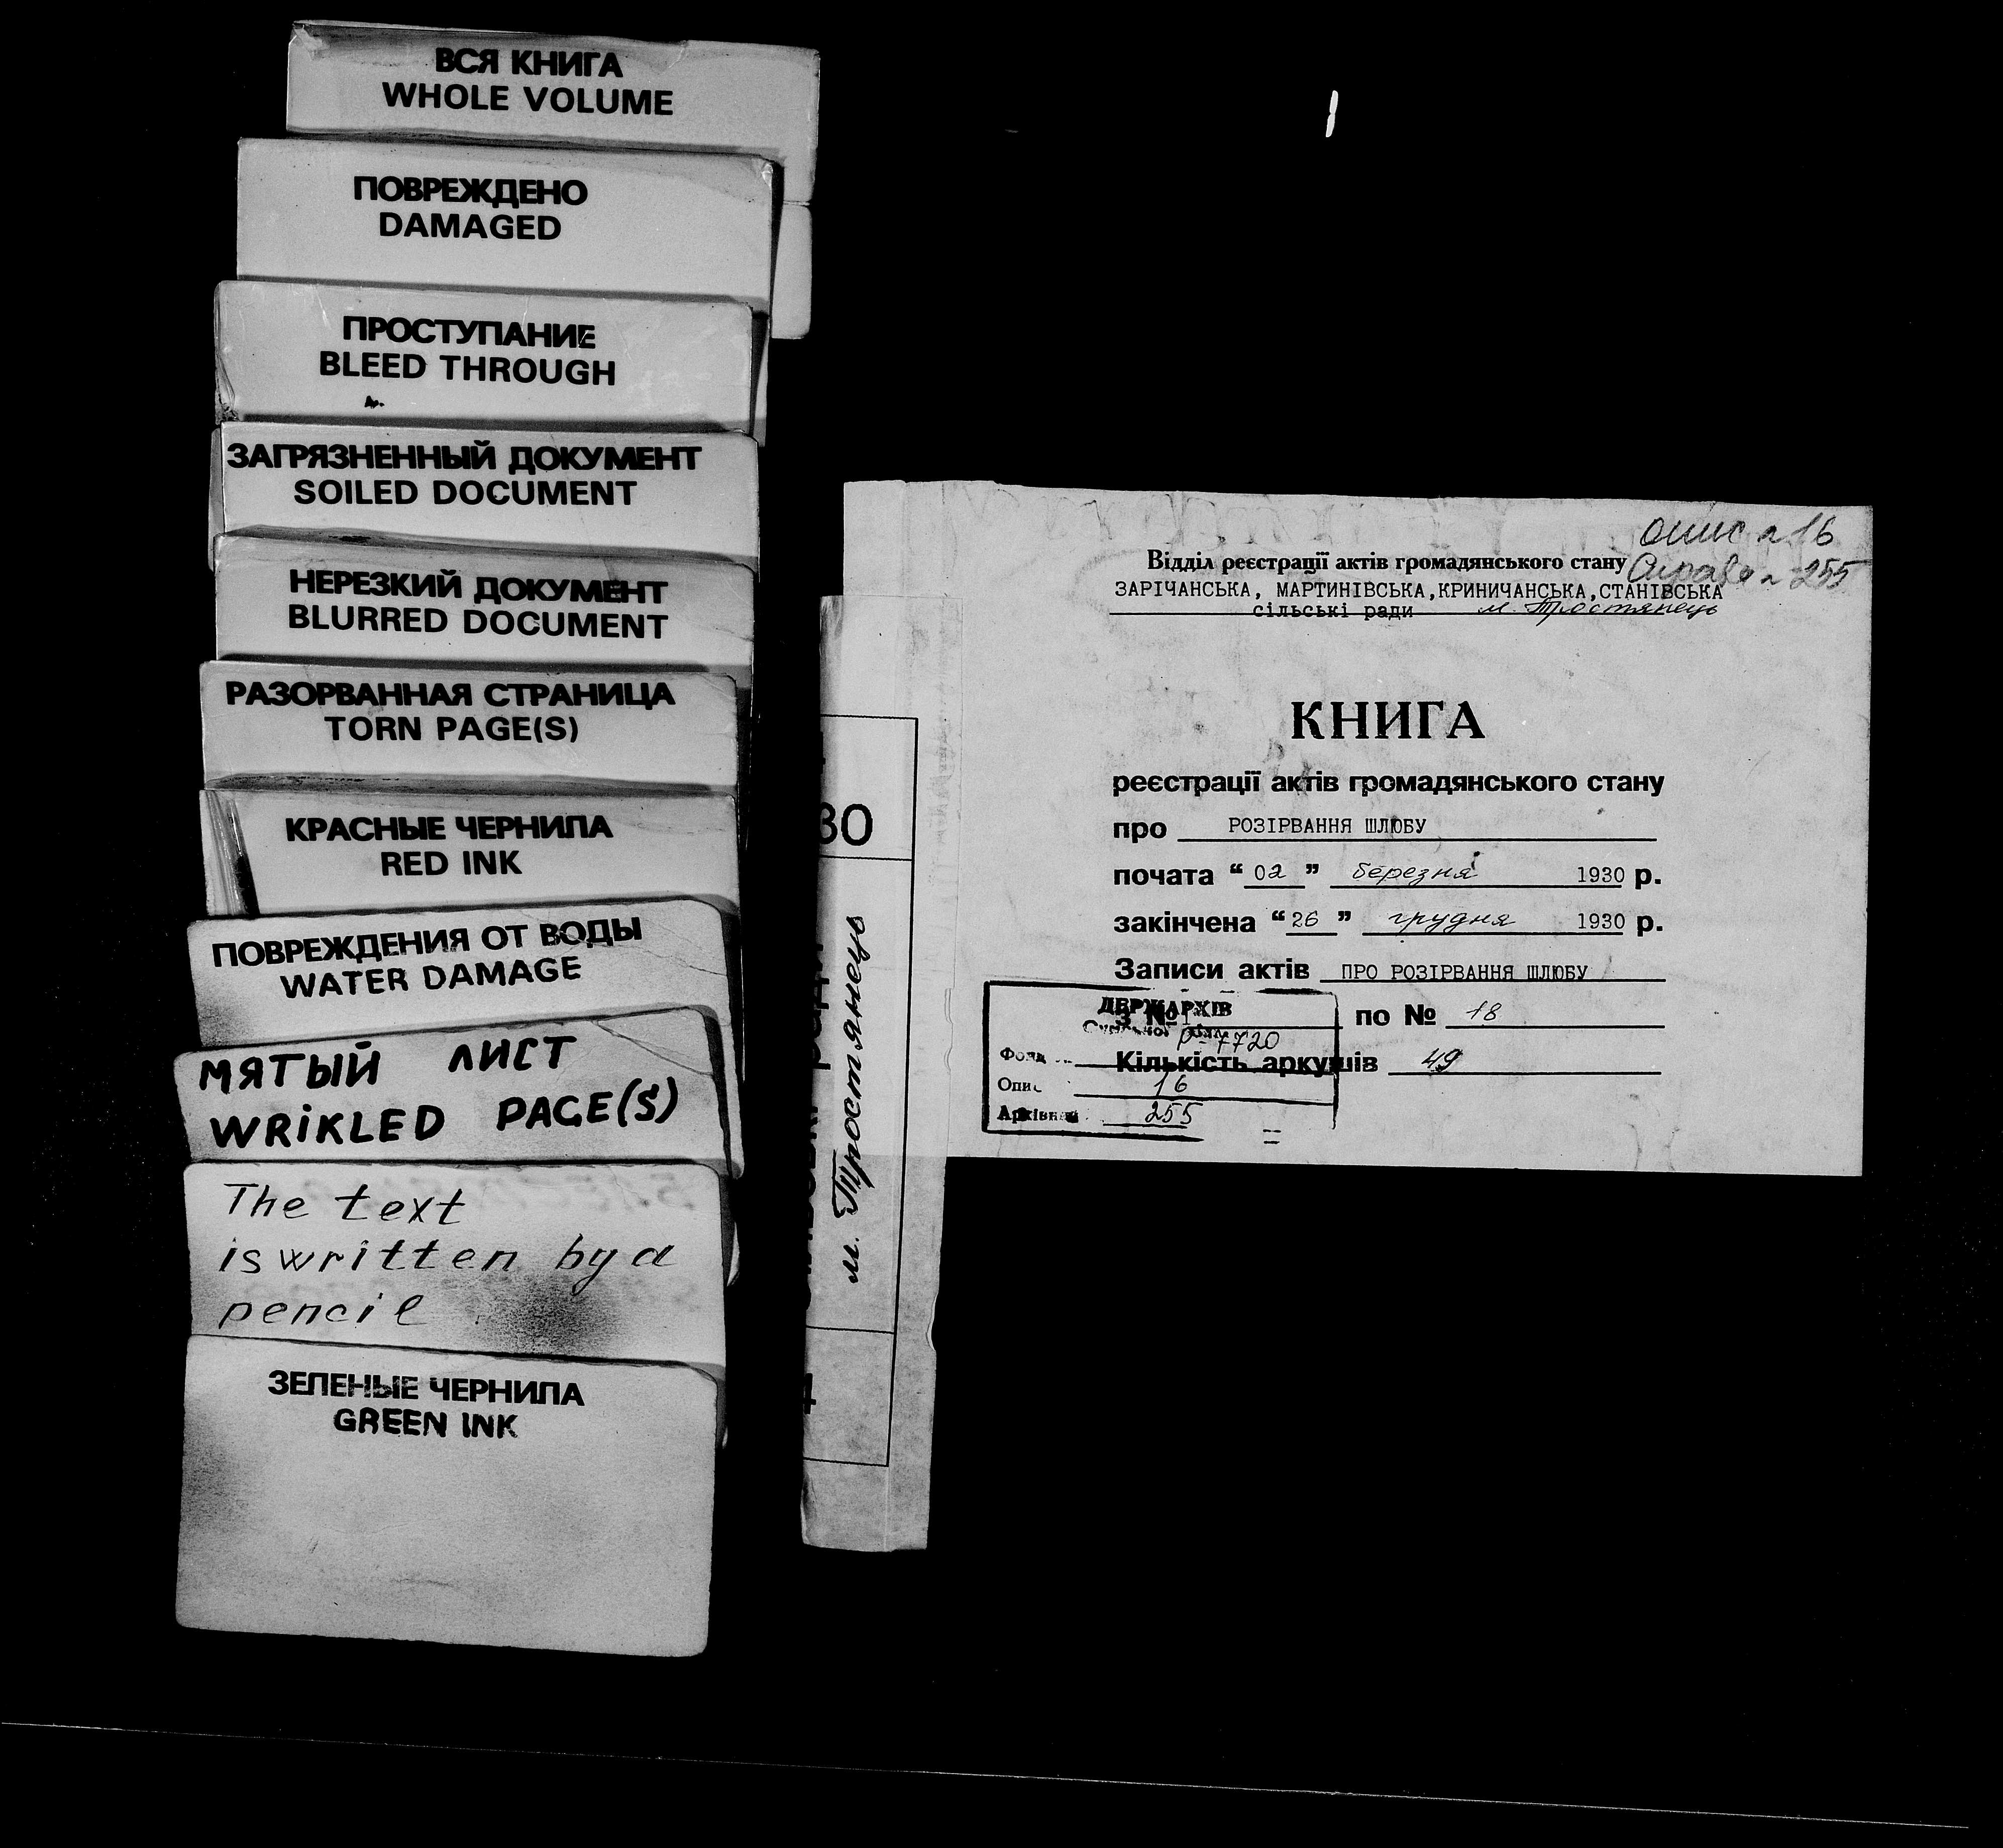 ВСЯ КНИГА
WHOLE VOLUME
ПОВРЕЖДЕНО
DAMAGED
ПРОСТУПАНИЕ
BLEED THROUGH
ЗАГРЯЗНЕННЫЙ ДОКУМЕНТ
SOILED DOCUMENT
НЕРЕЗКИЙ ДОКУМЕНТ
BLURRED DOCUMENT
РАЗОРВАННАЯ СТРАНИЦА
TORN PAGE(S)
КРАСНЫЕ ЧЕРНИЛА
RED INK
ПОВРЕЖДЕНИЯ ОТ ВОДЫ
WATER DAMAGE
МЯТЫЙ ЛИСТ
WRIKLED PAGE(S)
The text
is written by a
pencil
ЗЕЛЕНЫЕ ЧЕРНИЛА
GREEN INK
30
м. Тростянець
опис 16
Справа 255
Відділ реєстрації актів громадянського стану
ЗАРІЧАНСЬКА, МАРТИНІВСЬКА, КРИНИЧАНСЬКА, СТАНІВСЬКА
сільські ради м. Тростянець
КНИГА
реєстрації актів громадянського стану
про РОЗІРВАННЯ ШЛЮБУ
почата “ 02 ” березня 1930 р.
закінчена “ 26 ” грудня 1930 р.
Записи актів ПРО РОЗІРВАННЯ ШЛЮБУ
з № 1 по № 18
Кількість аркушів 49
ДЕРЖАРХІВ
Сумської
Фонд Р-7720
Опис 16
255